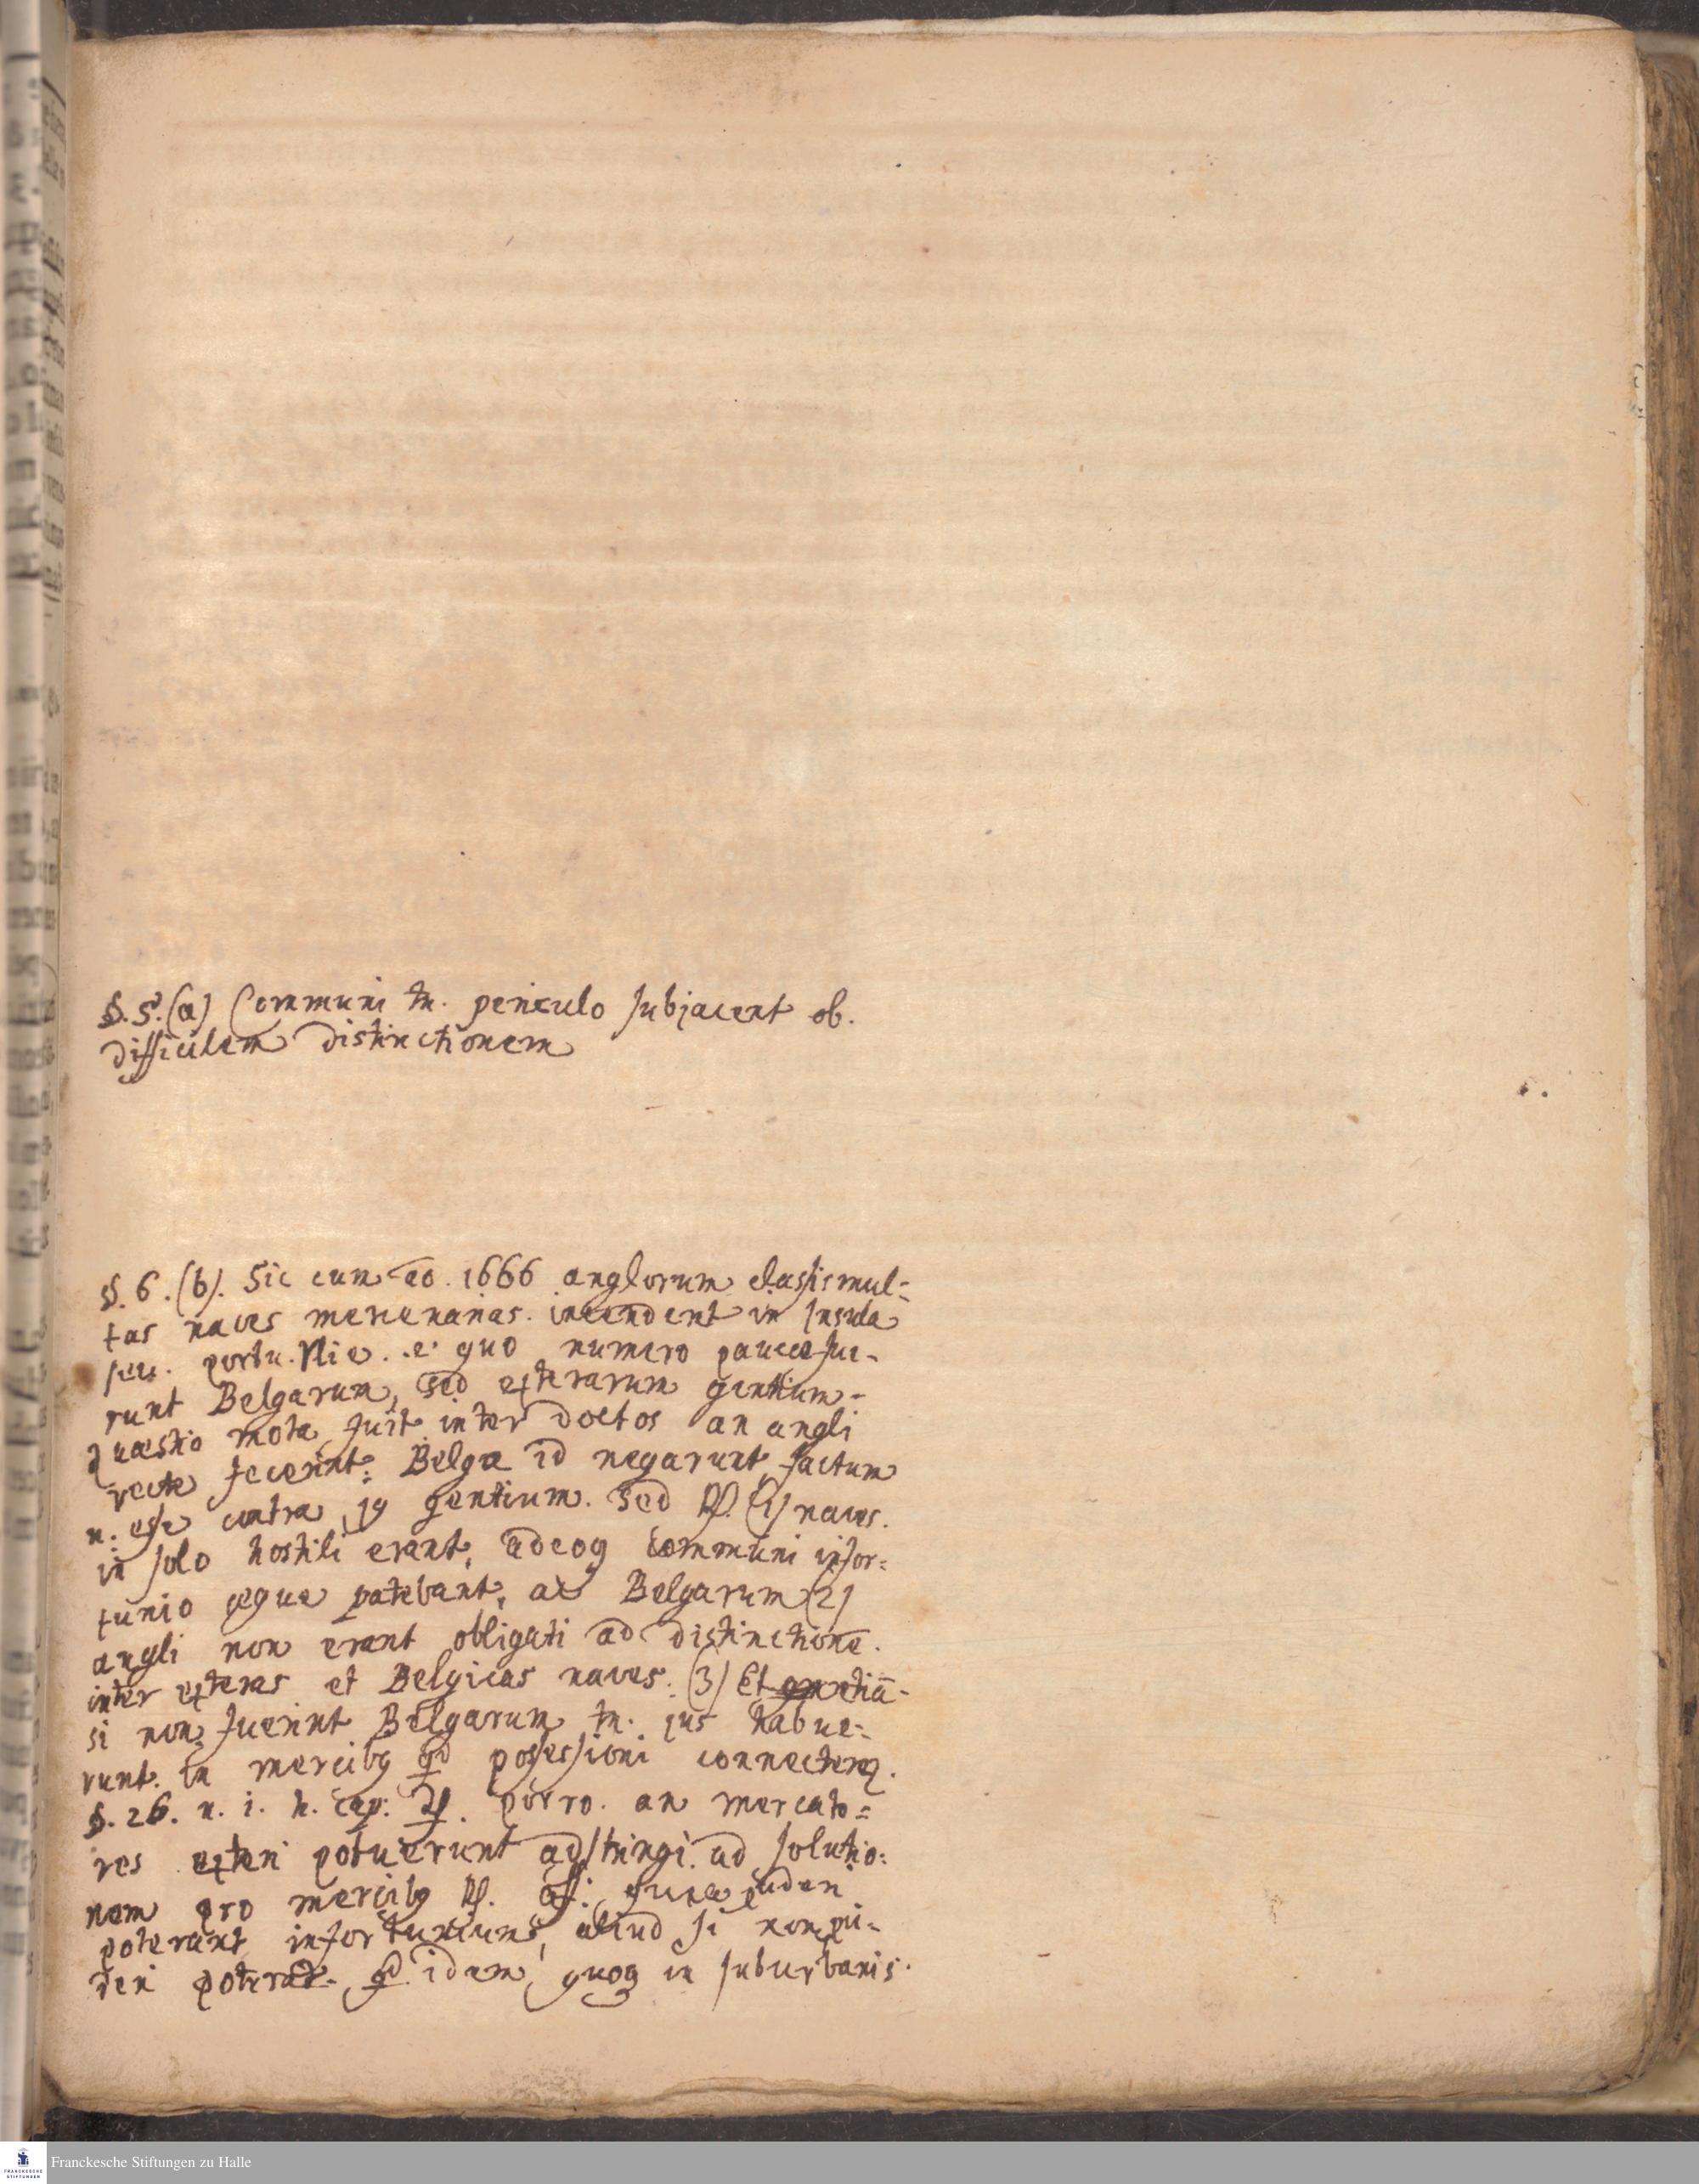 §. 5. (a) Communi tn. periculo subjacent ob.
difficilem distinctionem
§. 6. (b). Sic cum ao. 1666 anglorum classis mul-
tas naves mercenarias. incendent in Insula
seu. portu. Vlie. e. quo numero paucae fue-
runt Belgarum, sed exterarum gentium-
quaestio mota fuit inter doctos an angli
recte fecerint: Belgae id negarunt, factum
n. esse contra jg gentium. Sed Rf. (1) naves.
in solo hostili erant, adeoq communi infor-
tunio aeque patebant, ac Belgarum (2)
angli non erant obligati ad distinctione.
inter exteras et Belgicas naves. (3) Et etiā-
si non fuerint Belgarum tn. jus habue-
runt. in mercibg qd possessioni connecteret.
§. 26. n. 1. h. cap: porro. an mercato-
res exteri potuerunt adstringi ad solutio-
nem pro mercibg Rf. Aff:
poterant infortunium, aliud si non pu-
deri poterat. qd idem quoq in suburbanis.
Franckesche Stiftungen zu Halle